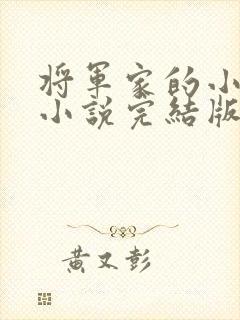 將軍家的小
小說完結版
黃又彭